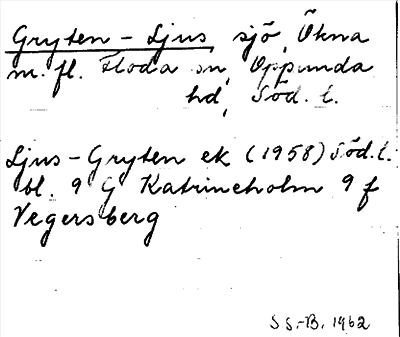 Gryten - Ljus, sjö, Ökna
m.fl. Floda sn, Oppunda
hd, Söd. l.
Ljus-Gryten ek (1958) Söd.l.
bl. 9 G Katrineholm 9 f
Vegersberg
S S.-B. 1962